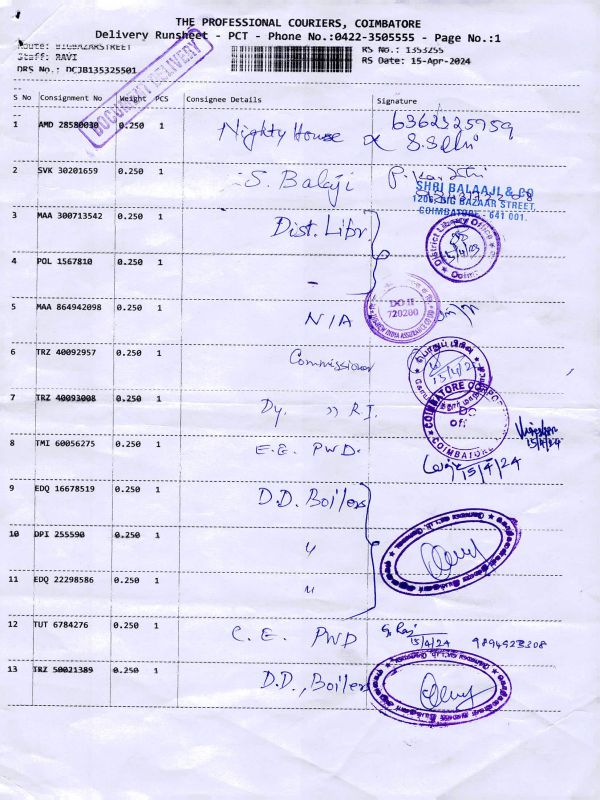 THE PROFESSIONAL COURIERS, COIMBATORE
Delivery Runsheet - PCT - Phone No.:0422-3505555 - Page No.:1
Route: BIGBAZARSTREET
RS No.: 1353255
Staff: RAVI
RS Date: 15-Apr-2024
DRS No.: DCJB135325501
DOCUMENT DELIVERY
S No Consignment No Weight PCS Consignee Details Signature
1 AMD 28580030 0.250 1 Nighty House 6362325959
S. Selvi
2 SVK 30201659 0.250 1 S. Balaji
SHRI BALAAJI & CO
1206, BIG BAZAAR STREET,
COIMBATORE - 641 001.
3 MAA 300713542 0.250 1 Dist. Libr.
District Library Office
Coimb
4 POL 1567810 0.250 1 -
DO II
720200
5 MAA 864942098 0.250 1 N/A
6 TRZ 40092957 0.250 1 Commissioner
15/4/24
7 TRZ 40093008 0.250 1 Dy. " R.I.
COIMBATORE CORPO
COIMBATORE
15/4/24
8 TMI 60056275 0.250 1 E.E. PWD.
15/4/24
9 EDQ 16678519 0.250 1 D.D. Boilers
10 DPI 255590 0.250 1 "
11 EDQ 22298586 0.250 1 "
12 TUT 6784276 0.250 1 C.E. PWD
15/4/24 9894923308
13 TRZ 50021389 0.250 1 D.D., Boilers